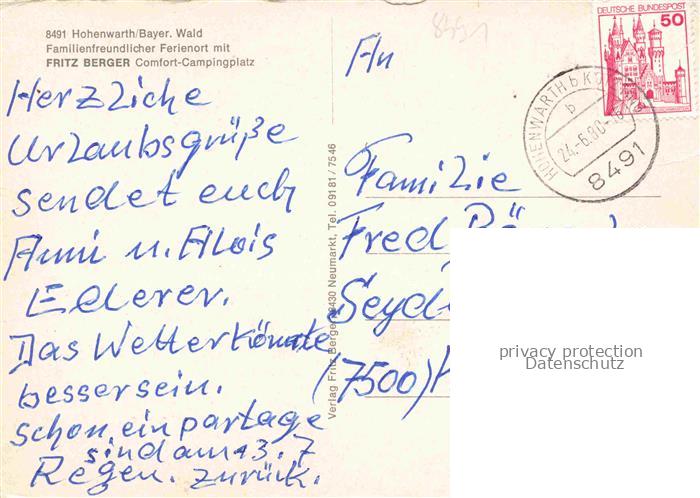 8491 Hohenwarth/Bayer. Wald
Familienfreundlicher Ferienort mit
FRITZ BERGER Comfort-Campingplatz
Herzliche
Urlaubsgrüße
sendet euch
Anni u. Alois
Ederer.
Das Wetter könnte
besser sein.
schon ein partage
Regen.
sind am 3. 7
zurück.
Verlag Fritz Berger, 8430 Neumarkt, Tel. 09181/7546
8491
An
Familie
Fred
Seyd
(7500)
DEUTSCHE BUNDESPOST
50
HOHENWARTH b
b
24.-6.80
8491
privacy protection
Datenschutz